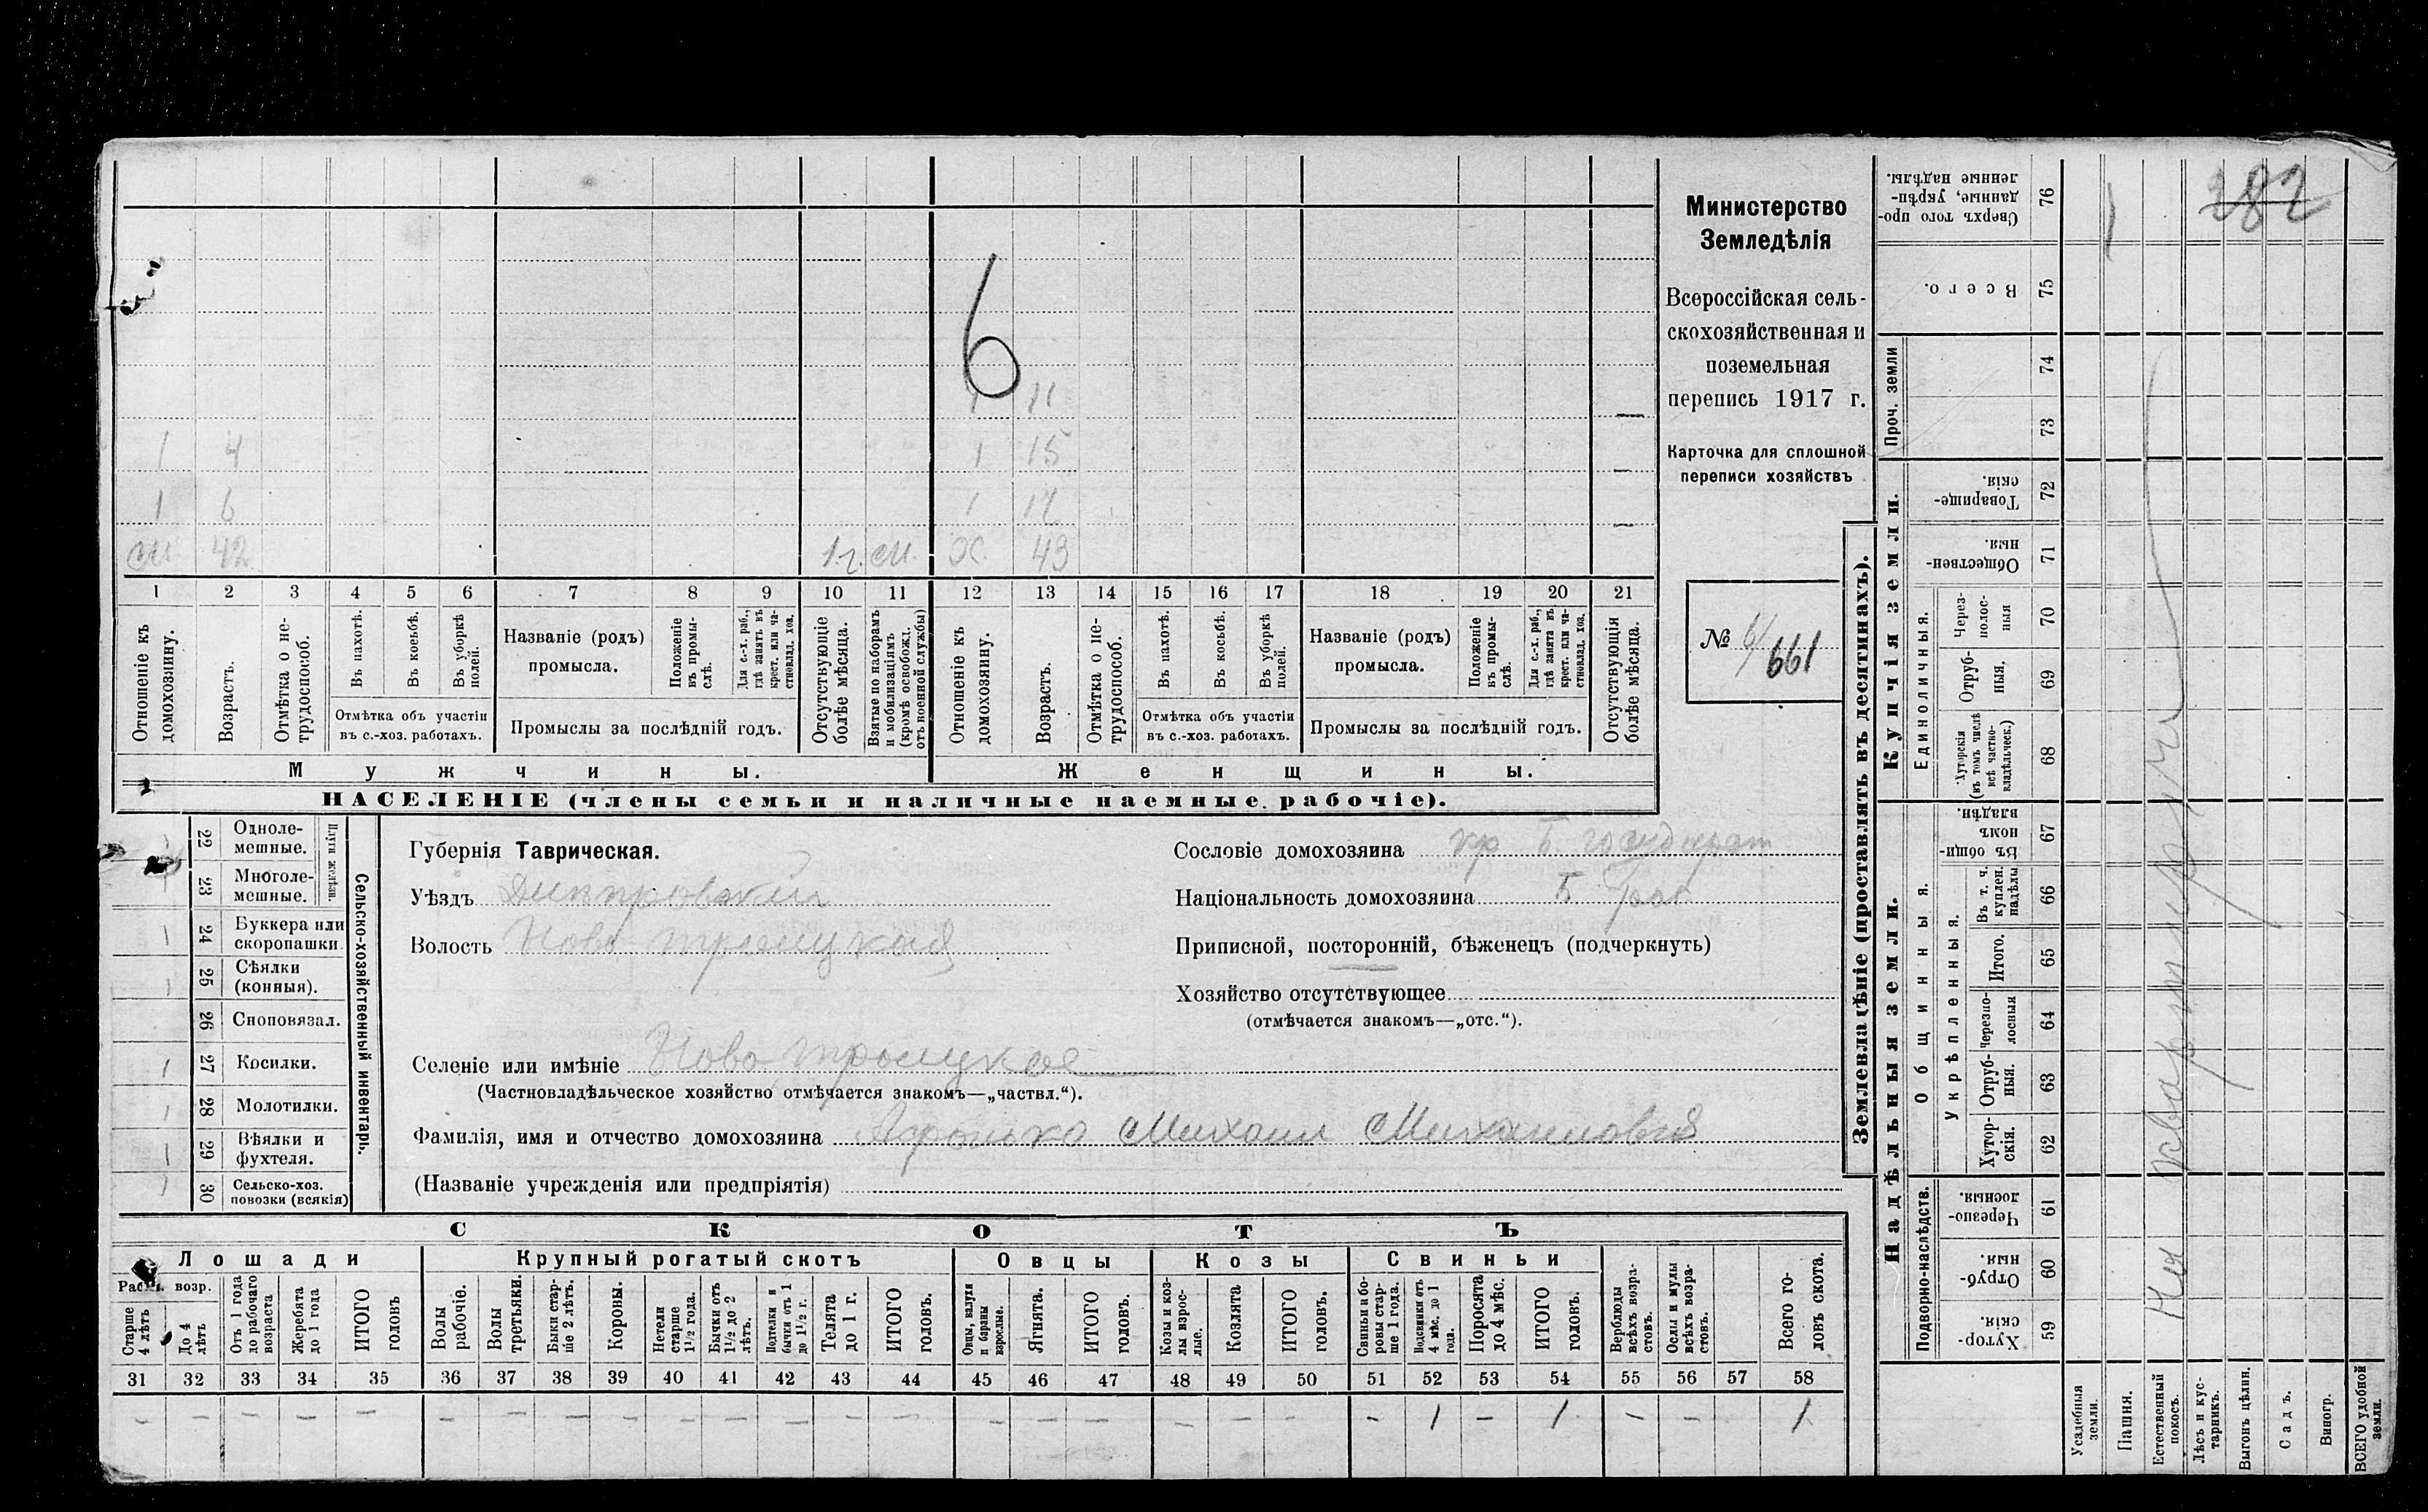 6
1 11
1 4 1 15
1 6 1 17
см. 42 1 г. см. Х. 43
1 2 3 4 5 6 7 8 9 10 11 12 13 14 15 16 17 18 19 20 21
Отношеніе къ домохозяину.
Возрастъ.
Отмѣтка о нетрудоспособ.
Въ пахотѣ.
Въ косьбѣ.
Въ уборкѣ полей.
Отмѣтка объ участіи
въ с.-хоз. работахъ.
Названіе (родъ)
промысла.
Положеніе въ промыслѣ.
Для с.-х. раб., гдѣ занятъ въ крест. или частновлад. хоз.
Промыслы за послѣдній годъ.
Отсутствующіе болѣе мѣсяца.
Взятые по наборамъ и мобилизаціямъ (кромѣ освобожд. отъ военной службы)
Отношеніе къ домохозяину.
Возрастъ.
Отмѣтка о нетрудоспособ.
Въ пахотѣ.
Въ косьбѣ.
Въ уборкѣ полей.
Отмѣтка объ участіи
въ с.-хоз. работахъ.
Названіе (родъ)
промысла.
Положеніе въ промыслѣ.
Для с.-х. раб., гдѣ занята въ крест. или частновлад. хоз.
Промыслы за послѣдній годъ.
Отсутствующія болѣе мѣсяца.
Мужчины.
Женщины.
НАСЕЛЕНІЕ (члены семьи и наличные наемные рабочіе).
Министерство
Земледѣлія
Всероссійская сель-
скохозяйственная и
поземельная
перепись 1917 г.
Карточка для сплошной
переписи хозяйствъ
№ 6/661
22 Однолемешные.
23 Многолемешные.
Плуги желѣзн.
24 Буккера или скоропашки.
25 Сѣялки (конныя).
26 Сноповязал.
27 Косилки.
28 Молотилки.
29 Вѣялки и фухтеля.
30 Сельско-хоз. повозки (всякія)
Сельско-хозяйственный инвентарь.
Губернія Таврическая.
Уѣздъ Днепровский
Волость Ново троицкая
Селеніе или имѣніе Ново троицкое
(Частновладѣльческое хозяйство отмѣчается знакомъ—„частвл.“).
Фамилія, имя и отчество домохозяина Михаил Михаилович
(Названіе учрежденія или предпріятія)
Сословіе домохозяина кр Б. государст
Національность домохозяина
Приписной, посторонній, бѣженецъ (подчеркнуть)
Хозяйство отсутствующее
(отмѣчается знакомъ—„отс.“).
СКОТЪ
Лошади
Крупный рогатый скотъ
Овцы
Козы
Свиньи
Рабоч. возр.
Старше 4 лѣтъ
До 4 лѣтъ
Отъ 1 года до рабочаго возраста
Жеребята до 1 года
ИТОГО головъ
Волы рабочіе.
Волы третьяки.
Быки старше 2 лѣтъ.
Коровы.
Нетели старше 1½ года.
Бычки отъ 1½ до 2 лѣтъ.
Подтелки и бычки отъ 1 до 1½ г.
Телята до 1 г.
ИТОГО головъ.
Овцы, валухи и бараны взрослые.
Ягнята.
ИТОГО головъ.
Козы и козлы взрослые.
Козлята
ИТОГО головъ.
Свиньи и боровы старше 1 года.
Подсвинки отъ 4 мѣс. до 1 года.
Поросята до 4 мѣс.
ИТОГО головъ.
Верблюды всѣхъ возрастовъ.
Ослы и мулы всѣхъ возрастовъ.
Всего головъ скота.
31 32 33 34 35 36 37 38 39 40 41 42 43 44 45 46 47 48 49 50 51 52 53 54 55 56 57 58
– – – – – – – – – – – – – – – – – – – – – 1 – 1 – – 1
Землевладѣніе (проставлять въ десятинахъ).
Надѣльныя земли.
Купчія земли.
Проч. земли
Подворно-наслѣдств.
Общинныя.
Укрѣпленныя.
Единоличныя.
Хуторскія. 59
Отрубныя. 60
Черезполосныя. 61
Хуторскія. 62
Отрубныя. 63
Черезполосныя 64
Итого. 65
Въ т. ч. куплен. надѣлы 66
Въ общинномъ владѣн. 67
Хуторскія (въ томъ числѣ всѣ частновладѣльческ.) 68
Отрубныя. 69
Черезполосныя 70
Общественныя. 71
Товарищескія. 72
73
74
Всего. 75
Сверхъ того проданные, укрѣпленные надѣлы. 76
282
На квартире
Усадебныя земли.
Пашня.
Естественный покосъ.
Лѣсъ и кустарникъ.
Выгонъ цѣлин.
Садъ.
Виногр.
ВСЕГО удобной земли.